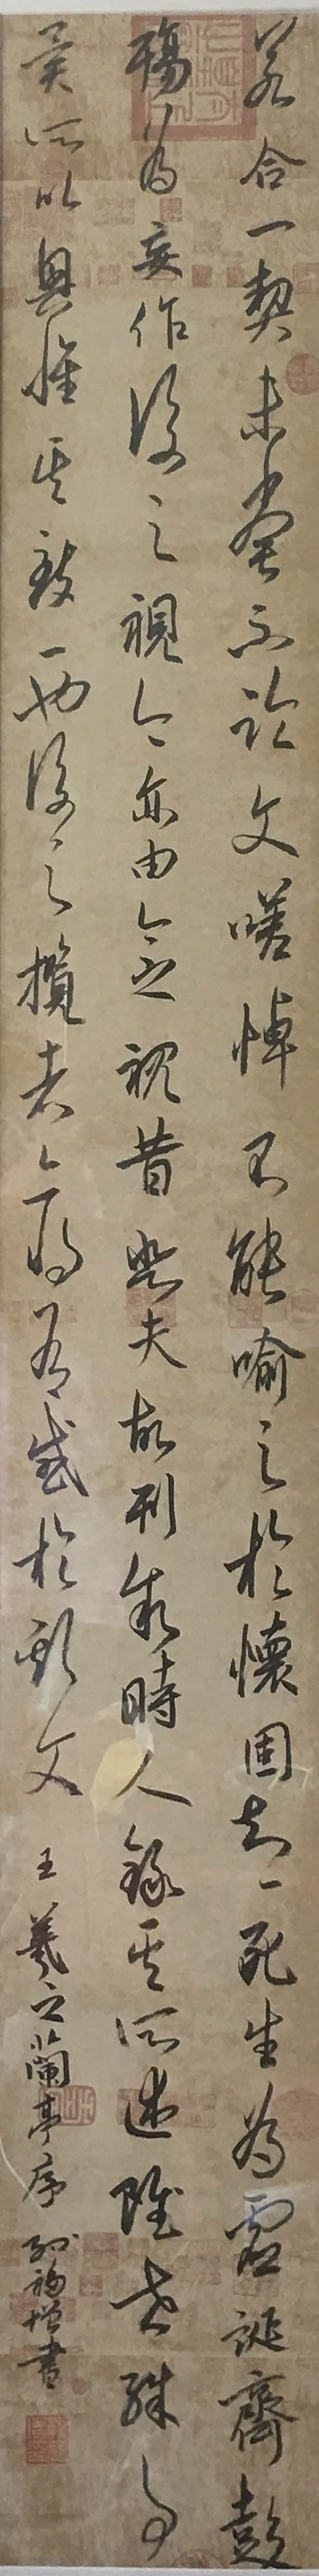 若合一契未嘗不臨文嗟悼不能喻之於懷固知一死生為虛誕齊彭
殤為妄作後之視今亦由今之視昔悲夫故列叙時人錄其所述雖世殊事
異所以興懷其致一也後之攬者亦將有感於斯文
王羲之蘭亭序 增書